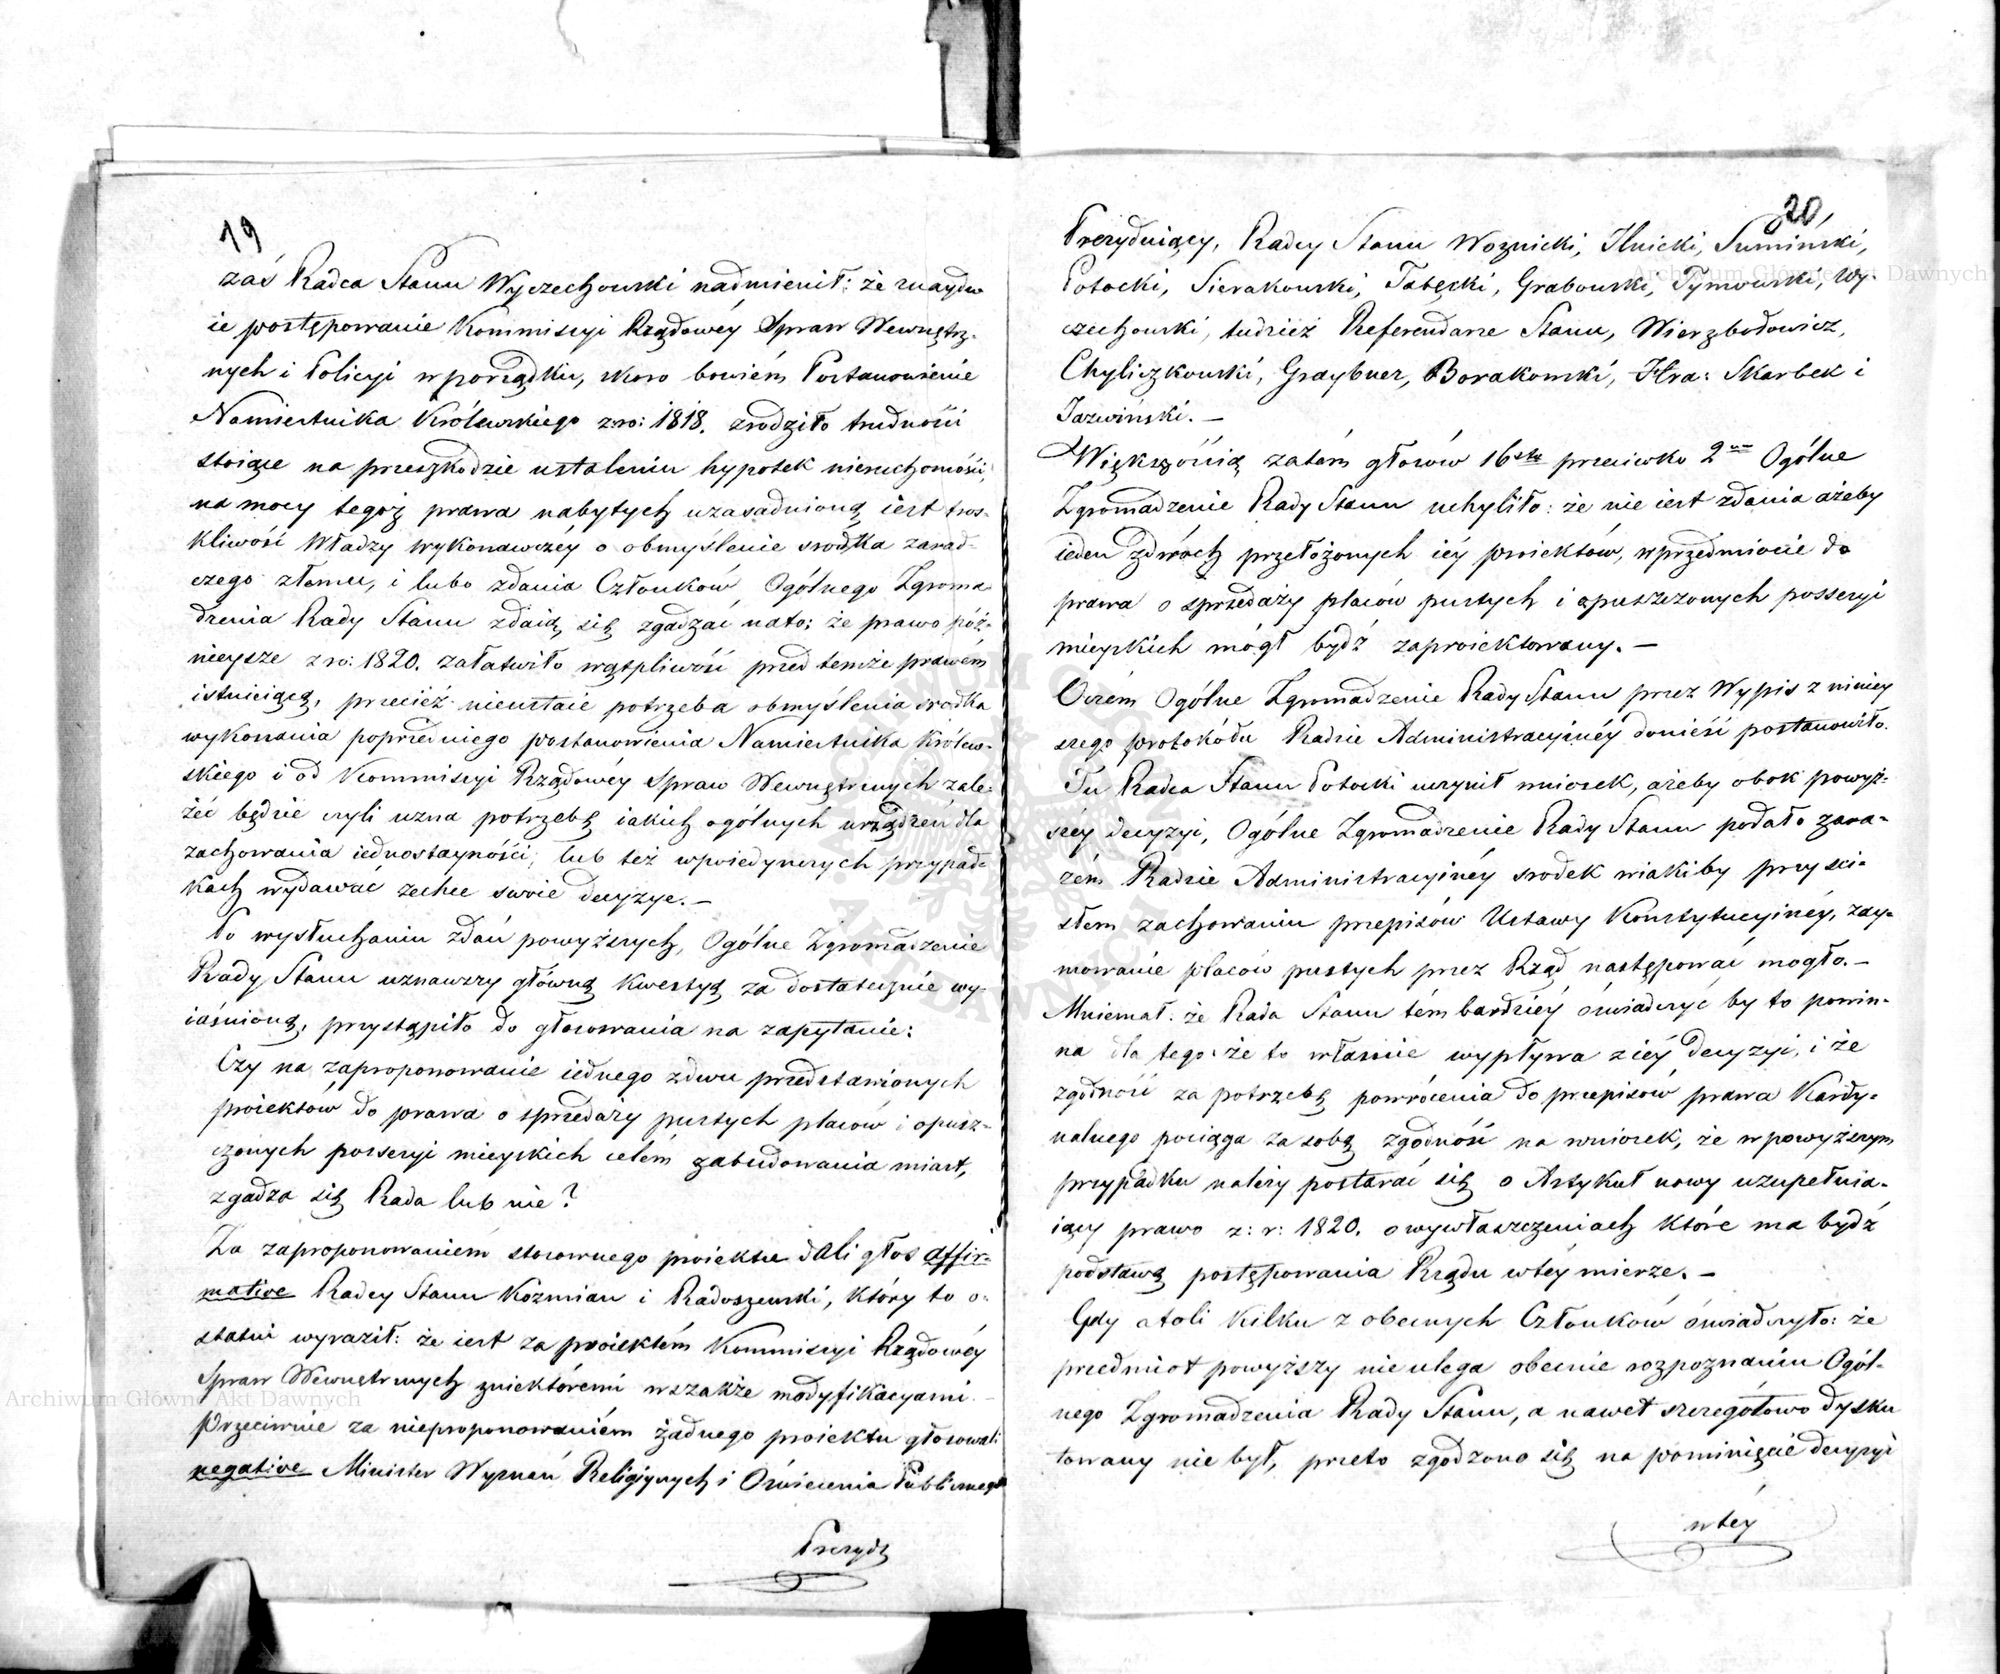 19
zaś Radca Stanu Wyczechowski nadmienił: że znaydu
ie postępowanie Kommissyi Rządowéy Spraw Wewnętrz-
nych i Policyi w porządku, skoro bowiém Postanowienie
Namiestnika Królewskiego z ro: 1818. zrodziło trudności
stoiące na przeszkodzie ustaleniu hypotek nieruchomości,
na mocy tegoż prawa nabytych uzasadnioną iest tros-
kliwość Władzy wykonawczéy o obmyślenie srodka zarad-
czego złemu, i lubo zdania Członków Ogólnego Zgroma
dzenia Rady Stanu zdaią się zgadzać na to; że prawo póź-
nieysze z ro: 1820. załatwiło wątpliwość przed temże prawém
istnieiącą, przecież nieustaie potrzeba obmyślenia srodka
wykonania poprzedniego postanowienia Namiestnika Królew-
skiego i od Kommissyi Rządowéy Spraw Wewnętrznych zale-
żéć będzie czyli uzna potrzebę iakich ogólnych urządzeń dla
zachowania iednostayności, lub też w poiedynczych przypad-
kach wydawać zechce swoie decyzye. —
Po wysłuchaniu zdań powyższych, Ogólne Zgromadzenie
Rady Stanu uznawszy główną kwestyą za dostatecznie wy-
iaśnioną, przystąpiło do głosowania na zapytanie:
Czy na zaproponowanie iednego z dwu przedstawionych
proiektów do prawa o sprzedaży pustych placów i opusz-
czonych possessyi mieyskich celém zabudowania miast,
zgadza się Rada lub nie?
Za zaproponowaniém stosownego proiektu dali głos affir-
mative Radcy Stanu Koźmian i Radoszewski, który to o-
statni wyraził: że iest za proiektém Kommissyi Rządowéy
Spraw Wewnętrznych z niektóremi wszakże modyfikacyami. —
Przeciwnie za nieproponowaniém żadnego proiektu głosowali
negative Minister Wyznań Religiynych i Oświecenia Publicznego
Prezydu
20,
Prezyduiący, Radcy Stanu Woznicki, Hnicki, Sumiński,
Potocki, Sierakowski, Tabęcki, Grabowski, Tymowski, Wy-
czechowski, tudzież Referendarze Stanu, Wierzbołowicz,
Chyliczkowski, Graybner, Borakowski, Hra: Skarbek i
Jazwiński. —
Większością zatém głosów 16stu przeciwko 2m Ogólne
Zgromadzenie Rady Stanu uchyliło: że nie iest zdania ażeby
ieden z dwóch przełożonych iéy proiektów, w przedmiocie do
prawa o sprzedaży placów pustych i opuszczonych possessyi
mieyskich mógł bydź zaproiektowany. —
O czém Ogólne Zgromadzenie Rady Stanu przez Wypis z niniey
szego protokółu Radzie Administracyinéy donieść postanowiło.
Tu Radca Stanu Potocki uczynił wniosek, ażeby obok powyż-
széy decyzyi, Ogólne Zgromadzenie Rady Stanu podało zara-
zém Radzie Administracyinéy srodek w iakiby przy sci-
słem zachowaniu przepisów Ustawy Konstytucyinéy, zay-
mowanie placów pustych przez Rząd następować mogło. —
Mniemał: że Rada Stanu tém bardziéy oświadczyć by to powin-
na dla tego: że to właśnie wypływa z iéy decyzyi, i że
zgodność za potrzebę powrócenia do przepisów prawa Kardy-
nalnego pociąga za sobą zgodność na wniosek, że w powyższym
przypadku należy postarać się o Artykuł nowy uzupełnia-
iący prawo z: r: 1820. o wywłaszczeniach które ma bydź
podstawą postępowania Rządu w téy mierze. —
Gdy atoli kilku z obecnych Członków oświadczyło: że
przedmiot powyższy nie ulega obecnie rozpoznaniu Ogól-
nego Zgromadzenia Rady Stanu, a nawet szczegółowo dysku
towany nie był, przeto zgodzono się na pominięcie decyzyi
w téy
Archiwum Główne Akt Dawnych
Archiwum Główne Akt Dawnych